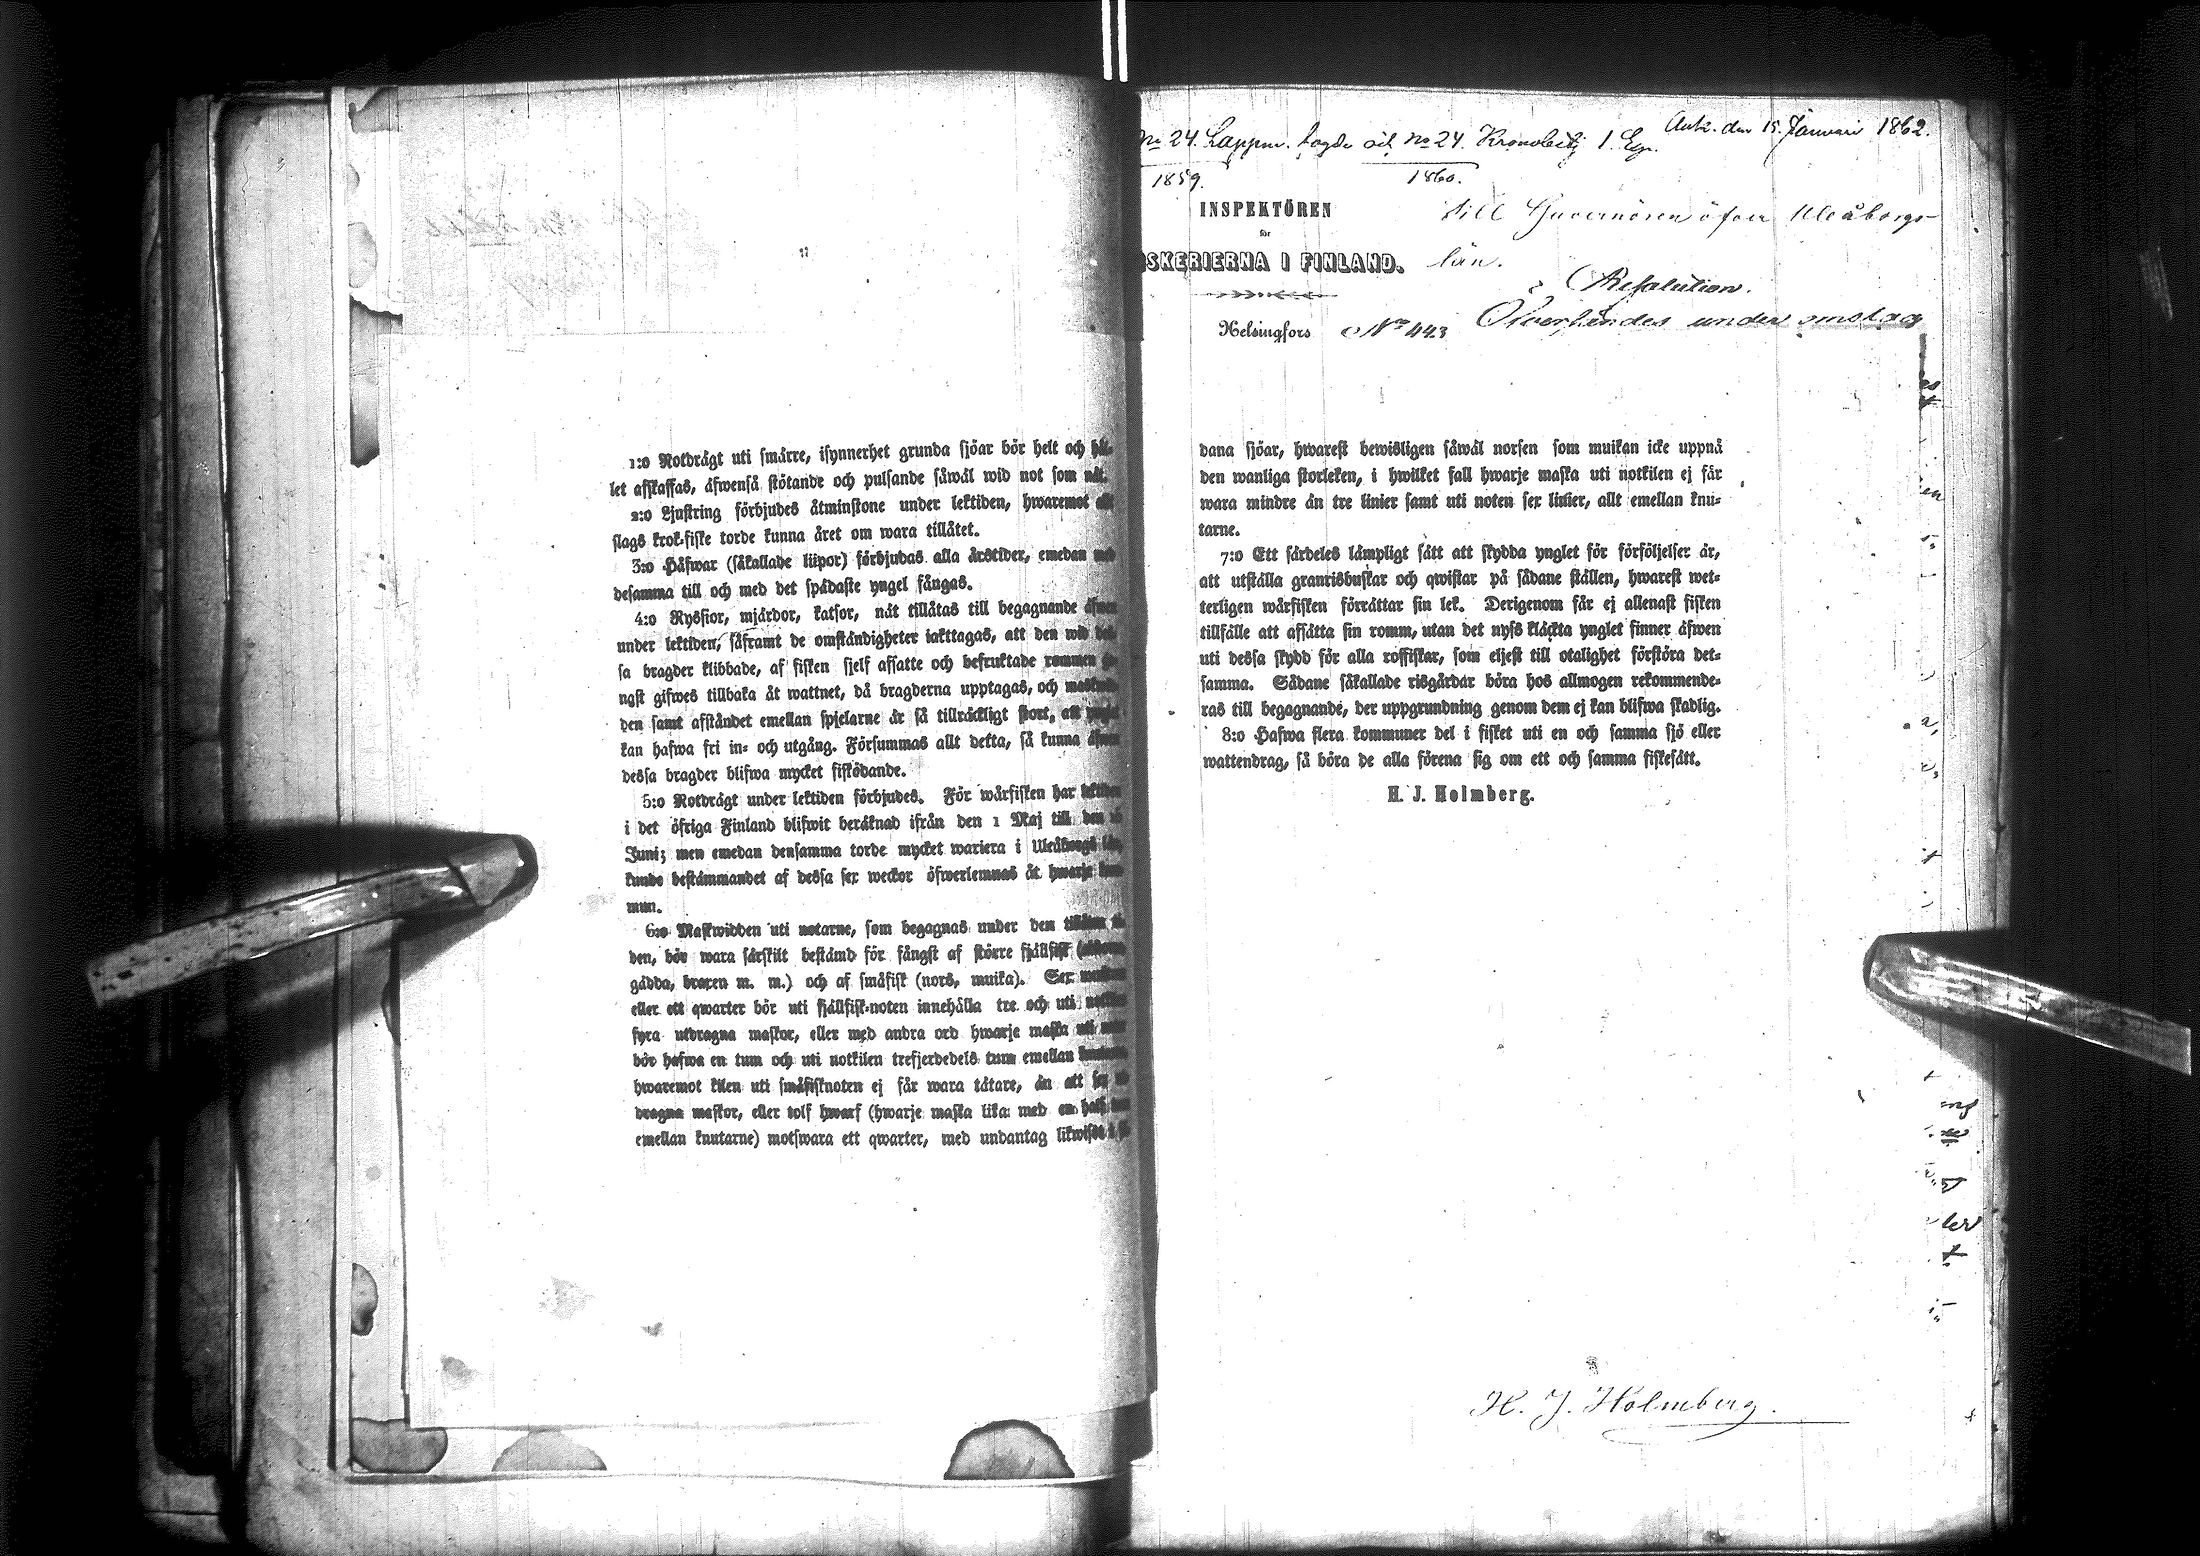 1:o Notdrägt uti smärre, isynnerhet grunda sjöar bör helt och hål-
let afskaffas, äfwenså stötande och pulsande såwäl wid not som nät.
2:o Ljustring förbjudes åtminstone under lektiden, hwaremot all
slags krok-fiske torde kunna året om wara tillåtet.
3:o Håfwar (såkallade liipor) förbjudas alla årstider, emedan med
desamma till och med det spädaste yngel fångas.
4:o Ryssior, mjärdor, katsor, nät tillåtas till begagnande äfwen
under lektiden, såframt de omständigheter iakttagas, att den wid des-
sa bragder klibbade, af fisken sjelf afsatte och befruktade rommen ge-
nast gifwes tillbaka åt wattnet, då bragderna upptagas, och
den samt afståndet emellan spjelarne är så tillräckligt stort, att ynglet
kan hafwa fri in- och utgång. Försummas allt detta, så kunna äfwen
dessa bragder blifwa mycket fisködande.
5:o Notdrägt under lektiden förbjudes. För wårfisken har lektiden
i det öfriga Finland blifwit beräknad ifrån den 1 Maj till den
Juni; men emedan densamma torde mycket wariera i Uleåborgs län,
kunde bestämmandet af dessa sex weckor öfwerlemnas åt hwarje kom-
mun.
6:o Maskwidden uti notarne, som begagnas under den tillåtna ti-
den, bör wara särskilt bestämd för fångst af större fjällfisk
gädda, braxen m. m.) och af småfisk (nors, muika). Sex
eller ett qwarter bör uti fjällfisk-noten innehålla tre och uti notkilen
fyra utdragna maskor, eller med andra ord hwarje maska uti noten
bör hafwa en tum och uti notkilen trefjerdedels tum emellan knutarne
hwaremot kilen uti småfisknoten ej får wara tätare, än att sex ut-
dragna maskor, eller tolf hwarf (hwarje maska lika med en half tum
emellan knutarne) motswara ett qwarter, med undantag likwisst i så-
Ank. den 15. Januari 1862.
No 24. Lappm. fogde och No 24. Kronobetj 1. Exp.
1859. 1860.
INSPEKTÖREN
för
SKERIERNA I FINLAND.
Helsingfors No 443
Till Guvernören öfver Uleåborgs
län.
Resolution.
Öfversändes under omslag
dana sjöar, hwarest bewisligen såwäl norsen som muikan icke uppnå
den wanliga storleken, i hwilket fall hwarje maska uti notkilen ej får
wara mindre än tre linier samt uti noten sex linier, allt emellan knu-
tarne.
7:o Ett särdeles lämpligt sätt att skydda ynglet för förföljelser är,
att utställa granrisbuskar och qwistar på sådane ställen, hwarest wet-
terligen wårfisken förrättar sin lek. Derigenom får ej allenast fisken
tillfälle att afsätta sin romm, utan det nyss kläckta ynglet finner äfwen
uti dessa skydd för alla roffiskar, som eljest till otalighet förstöra det-
samma. Sådane såkallade risgårdar böra hos allmogen rekommende-
ras till begagnande, der uppgrundning genom dem ej kan blifwa skadlig.
8:o Hafwa flera kommuner del i fisket uti en och samma sjö eller
wattendrag, så böra de alla förena sig om ett och samma fiskesätt.
H. J. Holmberg.
H. J. Holmberg.